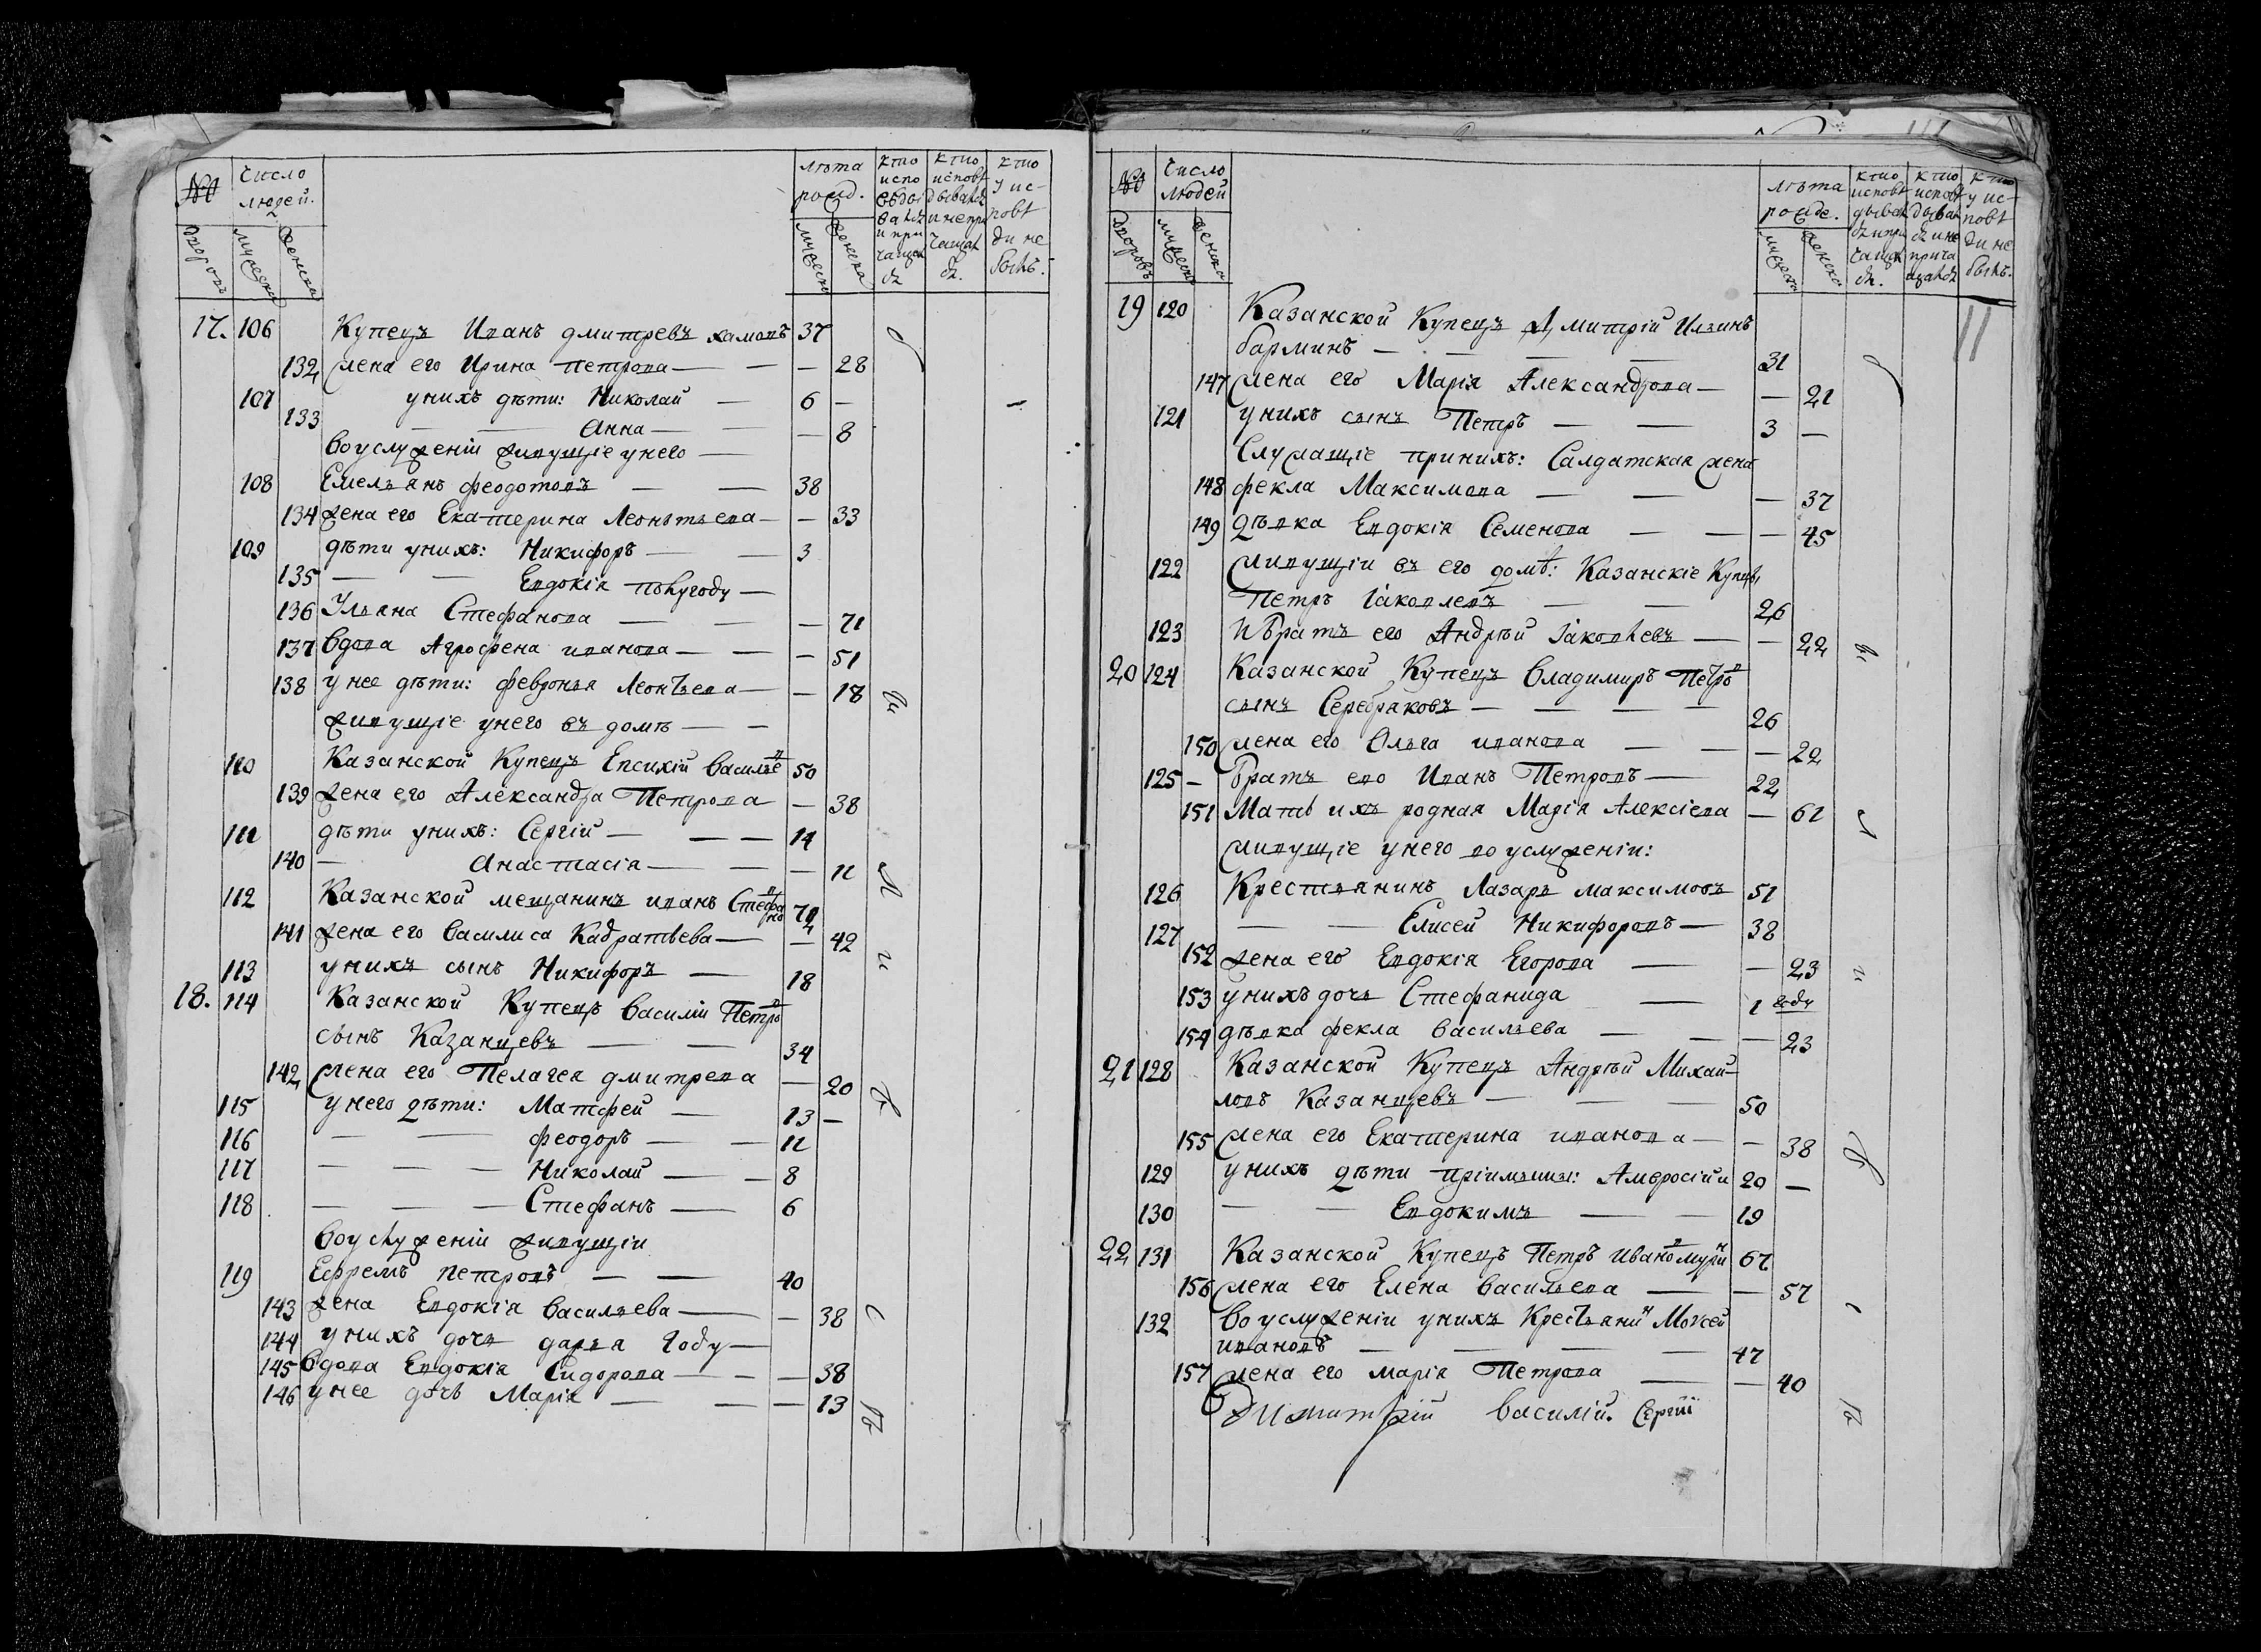 №
Число людей.
лѣта рожд.
кто испо вѣды валъ и при чащал ся
кто исповѣ дывался и непри чащал ся.
кто у ис- повѣ ди не былъ.
дворовъ мужеска женска мужеска женска
17. 106 Купецъ Иванъ дмитревъ хамовъ 37
132 жена его Ирина петрова — — — 28
107 унихъ дѣти: Николай — 6 —
133 — — Анна — — — 8
воуслуженіи живущіе унего —
108 Емельянъ феодотовъ — — 38
134 жена его Екатерина Леонтьева — — 33
109 дѣти унихъ: Никифоръ — — 3
135 — — Евдокія полугоду —
136 Ульяна Стефанова — — — 71
137 вдова Агрофена иванова — — — 51
138 у нее дѣти: февронья Леонтьева — — 18
живущіе унего въ домѣ — —
110 Казанской Купецъ Евсихій Василье в 50
139 жена его Александра Петрова — 38
111 дѣти унихъ: Сергій — — — 14
140 — Анастасія — — — 11
112 Казанской мещанинъ иванъ Стефа но в 74
141 жена его василиса Кадратьева — — 42
113 унихъ сынъ Никифоръ — 18
18. 114 Казанской Купецъ василіи Петро в
сынъ Казанцевъ — — 34
142 жена его Пелагея дмитрева — 20
115 унего дѣти: Матфей — 13 —
116 — — феодоръ — — 11
117 — — — Николай — — 8
118 — — — Стефанъ — 6
воуслуженіи живущіи
119 Ефремъ петровъ — — 40
143 жена Евдокія васильева — — 38
144 унихъ дочь дарья году —
145 вдова Евдокія Сидорова — — — 38
146 унее дочь Марія — — — 13
№
Число людей
лѣта рожде.
кто исповѣ дывал ся и при чащал ся.
кто исповѣ дывал ся и не прича щался
кто у ис- повѣ ди не былъ.
дворовъ мужеска женска мужеска женска
19 120 Казанской Купецъ Дмитрій Ильинъ
барминъ — — — — 31
147 жена его Марія Александрова — — 21
121 унихъ сынъ Петръ — — 3 —
Служащіе принихъ: Салдатская жена
148 фекла Максимова — — — 37
149 дѣвка Евдокія Семенова — — — 45
122 живущіи въ его домѣ: Казанскіе Купцы
Петръ Іаковлевъ — — 26
123 и братъ его Андрѣй Іаковлевъ — — 22
20 124 Казанской Купецъ Владимиръ Петро в
сынъ Серебраковъ — — — — 26
150 жена его Ольга иванова — — — 22
125 — Братъ ево Иванъ Петровъ — 22
151 Мать ихъ родная Марія Алексіева — 61
живущіе унего воуслуженіи:
126 Крестьянинъ Лазарь максимовъ 51
127 — — Елисей Никифоровъ — 38
152 жена его Евдокія Егорова — — 23
153 унихъ дочь Стефанида — 1 году
154 дѣвка фекла васильева — — — 23
21 128 Казанской Купецъ Андрѣй Михай-
ловъ Казанцевъ — — — 50
155 жена его Екатерина иванова — — 38
129 унихъ дѣти пріимыши: Амвросій и 20 —
130 — — Евдокимъ — — 19
22 131 Казанской Купецъ Петръ Ивано в мури н 67
156 жена его Елена васильева — — 57
132 воуслуженіи унихъ Крестьяни н Мойсей
ивановъ — — — — 47
157 жена его марія Петрова — — 40
Димитрій василій. Сергій